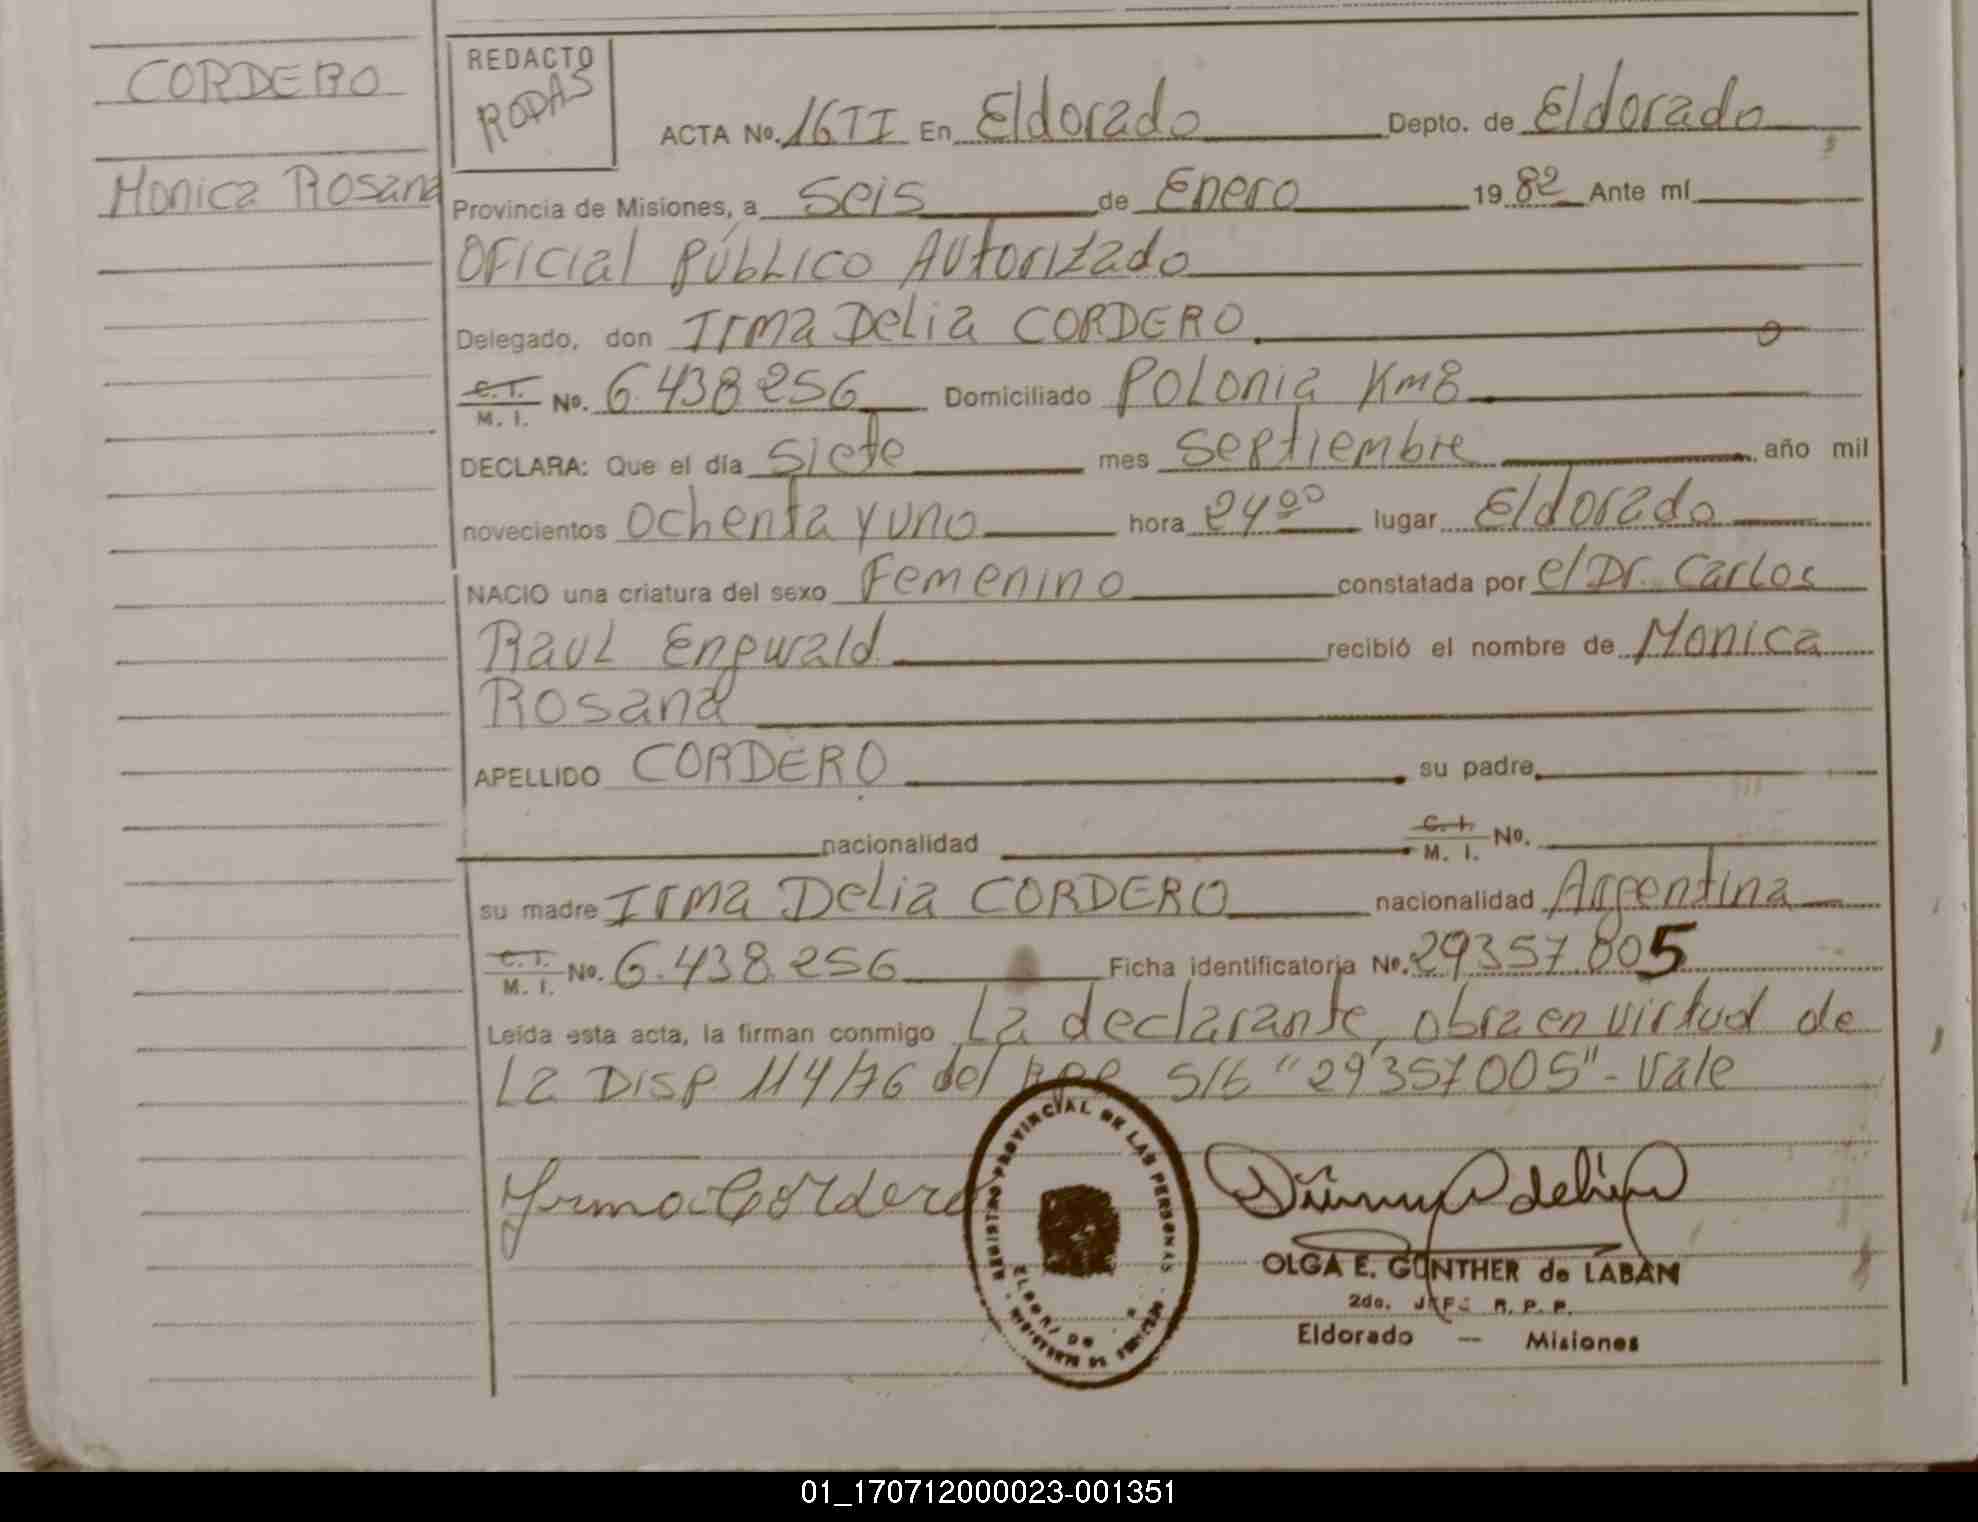 CORDERO
Monica Rosana
REDACTO
RODAS
ACTA No. 16TI En Eldorado Depto. de Eldorado
Provincia de Misiones, a Seis de Enero 19 82 Ante mí
Oficial Público Autorizado
Delegado, don Irma Delia CORDERO
C. I. M. I. No. 6.438.256 Domiciliado Polonia Km8
DECLARA: Que el día siete mes septiembre año mil
novecientos ochenta y uno hora 24 00 lugar Eldorado
NACIO una criatura del sexo Femenino constatada por el Dr. Carlos
Raul Engwald recibió el nombre de Monica
Rosana
APELLIDO CORDERO su padre
nacionalidad C. I. M. I. No.
su madre Irma Delia CORDERO nacionalidad Argentina
C. I. M. I. No. 6.438.256 Ficha identificatoria No. 29357805
Leída esta acta, la firman conmigo La declarante, obra en virtud de
La DISP 114/76 del S/b "29357005" - Vale
Irma Cordero
REGISTRO PROVINCIAL DE LAS PERSONAS
ELDORADO
OLGA E. GUNTHER de LABAN
2do. JEFE R. P. P.
Eldorado — Misiones
01_170712000023-001351